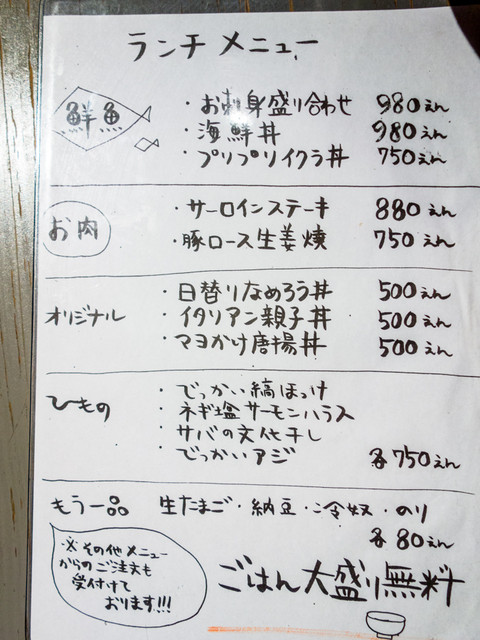 ランチメニュー
鮮魚
・お刺身盛り合わせ 980えん
・海鮮丼 980えん
・プリプリイクラ丼 750えん
お肉
・サーロインステーキ 880えん
・豚ロース生姜焼 750えん
オリジナル
・日替りなめろう丼 500えん
・イタリアン親子丼 500えん
・マヨかけ唐揚丼 500えん
ひもの
・でっかい縞ほっけ
・ネギ塩サーモンハラス
・サバの文化干し
・でっかいアジ 各750えん
もう一品 生たまご・納豆・冷奴・のり
各80えん
※その他メニュー
からのご注文も
受付けて
おります!!!
ごはん大盛り無料